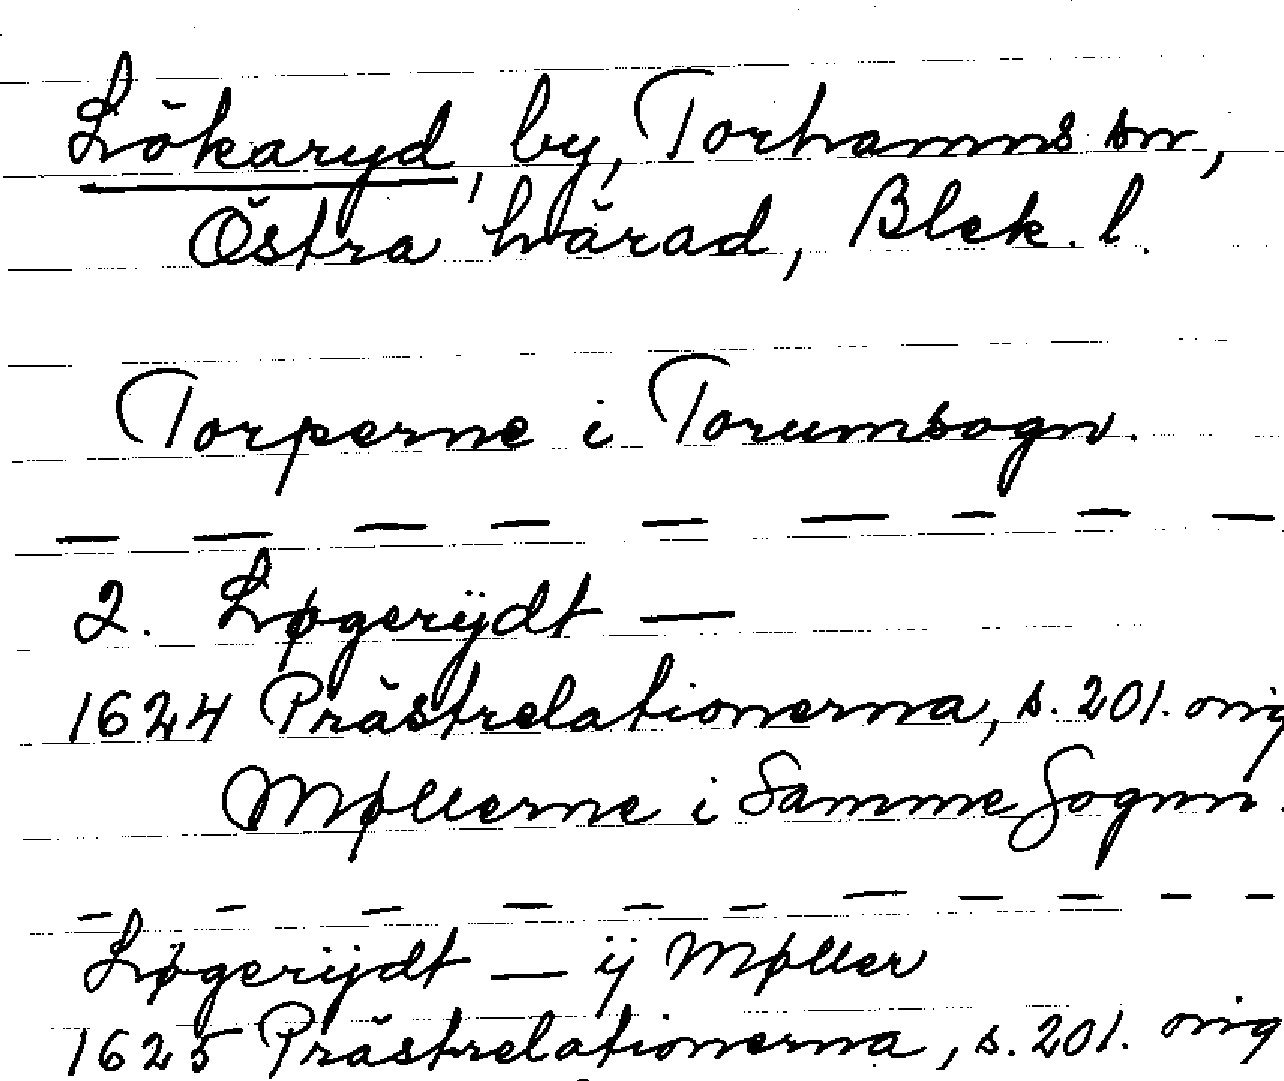 Lökaryd, by, Torhamns sn,
Östra härad, Blek. l.
Torperne i Torumsogn.
— — — — — — — — —
2. Løgerÿdt —
1624 Prästrelationerna, s. 201. orig
Møllerne i Samme Sognn.
— — — — — — — — — — —
Løgerÿdt — ij Møller
1625 Prästrelationerna, s. 201. orig